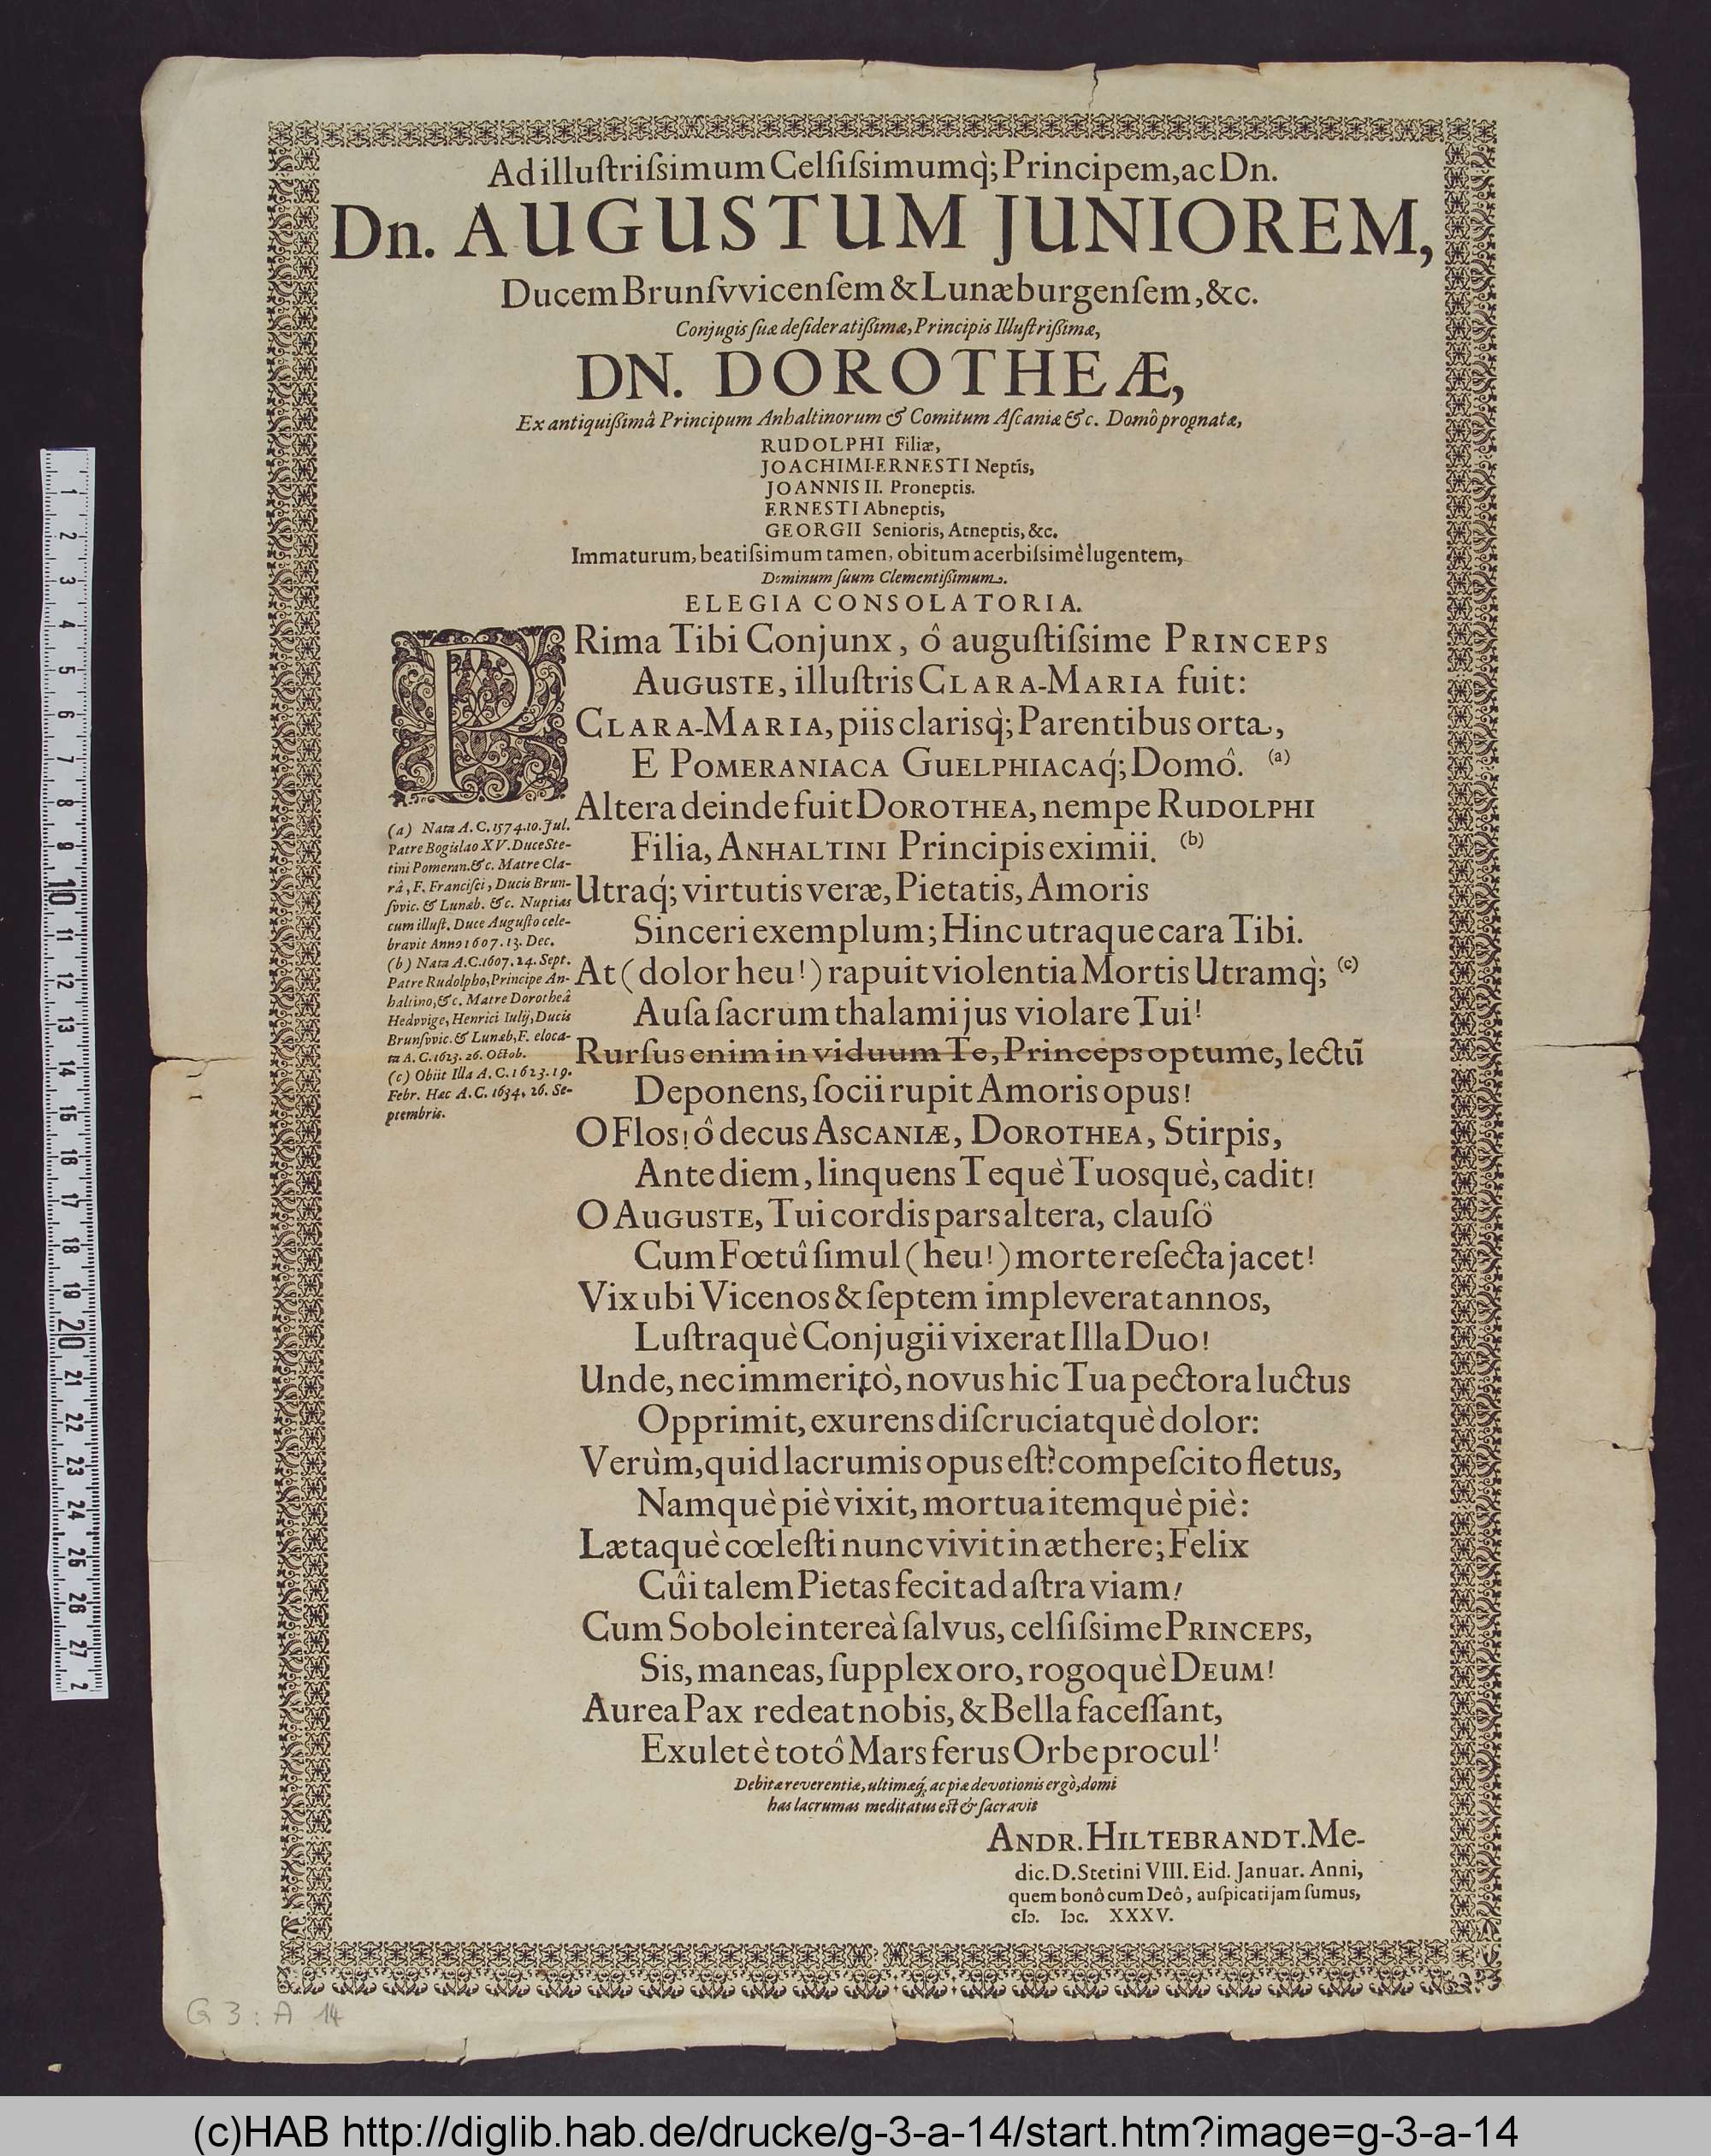 Ad illuſtriſsimum Celſiſsimumq̀; Principem, ac Dn.
Dn. AUGUSTUM JUNIOREM,
Ducem Brunſvvicenſem & Lunæburgenſem, &c.
Conjugis ſuæ deſideratißimæ, Principis Illuſtrißimæ,
DN. DOROTHEÆ,
Ex antiquißimâ Principum Anhaltinorum & Comitum Aſcaniæ &c. Domô prognatæ,
RUDOLPHI Filiæ,
JOACHIMI-ERNESTI Neptis,
JOANNIS II. Proneptis.
ERNESTI Abneptis,
GEORGII Senioris, Atneptis, &c.
Immaturum, beatiſsimum tamen, obitum acerbiſsimè lugentem,
Dominum ſuum Clementißimum.
ELEGIA CONSOLATORIA.
PRima Tibi Conjunx, ô auguſtiſsime PRINCEPS
AUGUSTE, illuſtris CLARA-MARIA fuit:
CLARA-MARIA, piis clarisq̀; Parentibus orta,
E POMERANIACA GUELPHIACAq́; Domô. (a)
Altera deinde fuit DOROTHEA, nempe RUDOLPHI
Filia, ANHALTINI Principis eximii. (b)
Utraq́; virtutis veræ, Pietatis, Amoris
Sinceri exemplum; Hinc utraque cara Tibi.
At (dolor heu!) rapuit violentia Mortis Utramq̀; (c)
Auſa ſacrum thalami jus violare Tui!
Rurſus enim in viduum Te, Princeps optume, lectũ
Deponens, ſocii rupit Amoris opus!
O Flos! ô decus ASCANIÆ, DOROTHEA, Stirpis,
Ante diem, linquens Tequè Tuosquè, cadit!
O AUGUSTE, Tui cordis pars altera, clauſô
Cum Fœtû ſimul (heu!) morte reſecta jacet!
Vix ubi Vicenos & ſeptem impleverat annos,
Luſtraquè Conjugii vixerat Illa Duo!
Unde, nec immeritò, novus hic Tua pectora luctus
Opprimit, exurens diſcruciatquè dolor:
Verùm, quid lacrumis opus eſt? compeſcito fletus,
Namquè piè vixit, mortua itemquè piè:
Lætaquè cœleſti nunc vivit in æthere; Felix
Cûi talem Pietas fecit ad aſtra viam!
Cum Sobole intereà ſalvus, celſiſsime PRINCEPS,
Sis, maneas, ſupplex oro, rogoquè DEUM!
Aurea Pax redeat nobis, & Bella faceſſant,
Exulet è totô Mars ferus Orbe procul!
(a) Nata A. C. 1574. 10. Jul.
Patre Bogislao XV. Duce Ste-
tini Pomeran. &c. Matre Cla-
râ, F. Franciſci, Ducis Brun-
ſvvic. & Lunæb. &c. Nuptias
cum illuſt. Duce Auguſto cele-
bravit Anno 1607. 13. Dec.
(b) Nata A.C. 1607. 24. Sept.
Patre Rudolpho, Principe An-
haltino, &c. Matre Dorotheâ
Hedvvige, Henrici Iulij, Ducis
Brunſvvic. & Lunæb, F. eloca-
ta A. C. 1623. 26. Octob.
(c) Obiit Illa A. C. 1623. 19.
Febr. Hæc A. C. 1634. 26. Se-
ptembris.
Debitæ reverentiæ, ultimæq́; ac piæ devotionis ergò, domi
has lacrumas meditatus eſt & ſacravit
ANDR. HILTEBRANDT. Me-
dic. D. Stetini VIII. Eid. Januar. Anni,
quem bonô cum Deô, auſpicati jam ſumus,
cIɔ. Iɔc. XXXV.
G 3 : A 14
1
2
3
4
5
6
7
8
9
10
11
12
13
14
15
16
17
18
19
20
21
22
23
24
25
26
27
2
(c)HAB http://diglib.hab.de/drucke/g-3-a-14/start.htm?image=g-3-a-14